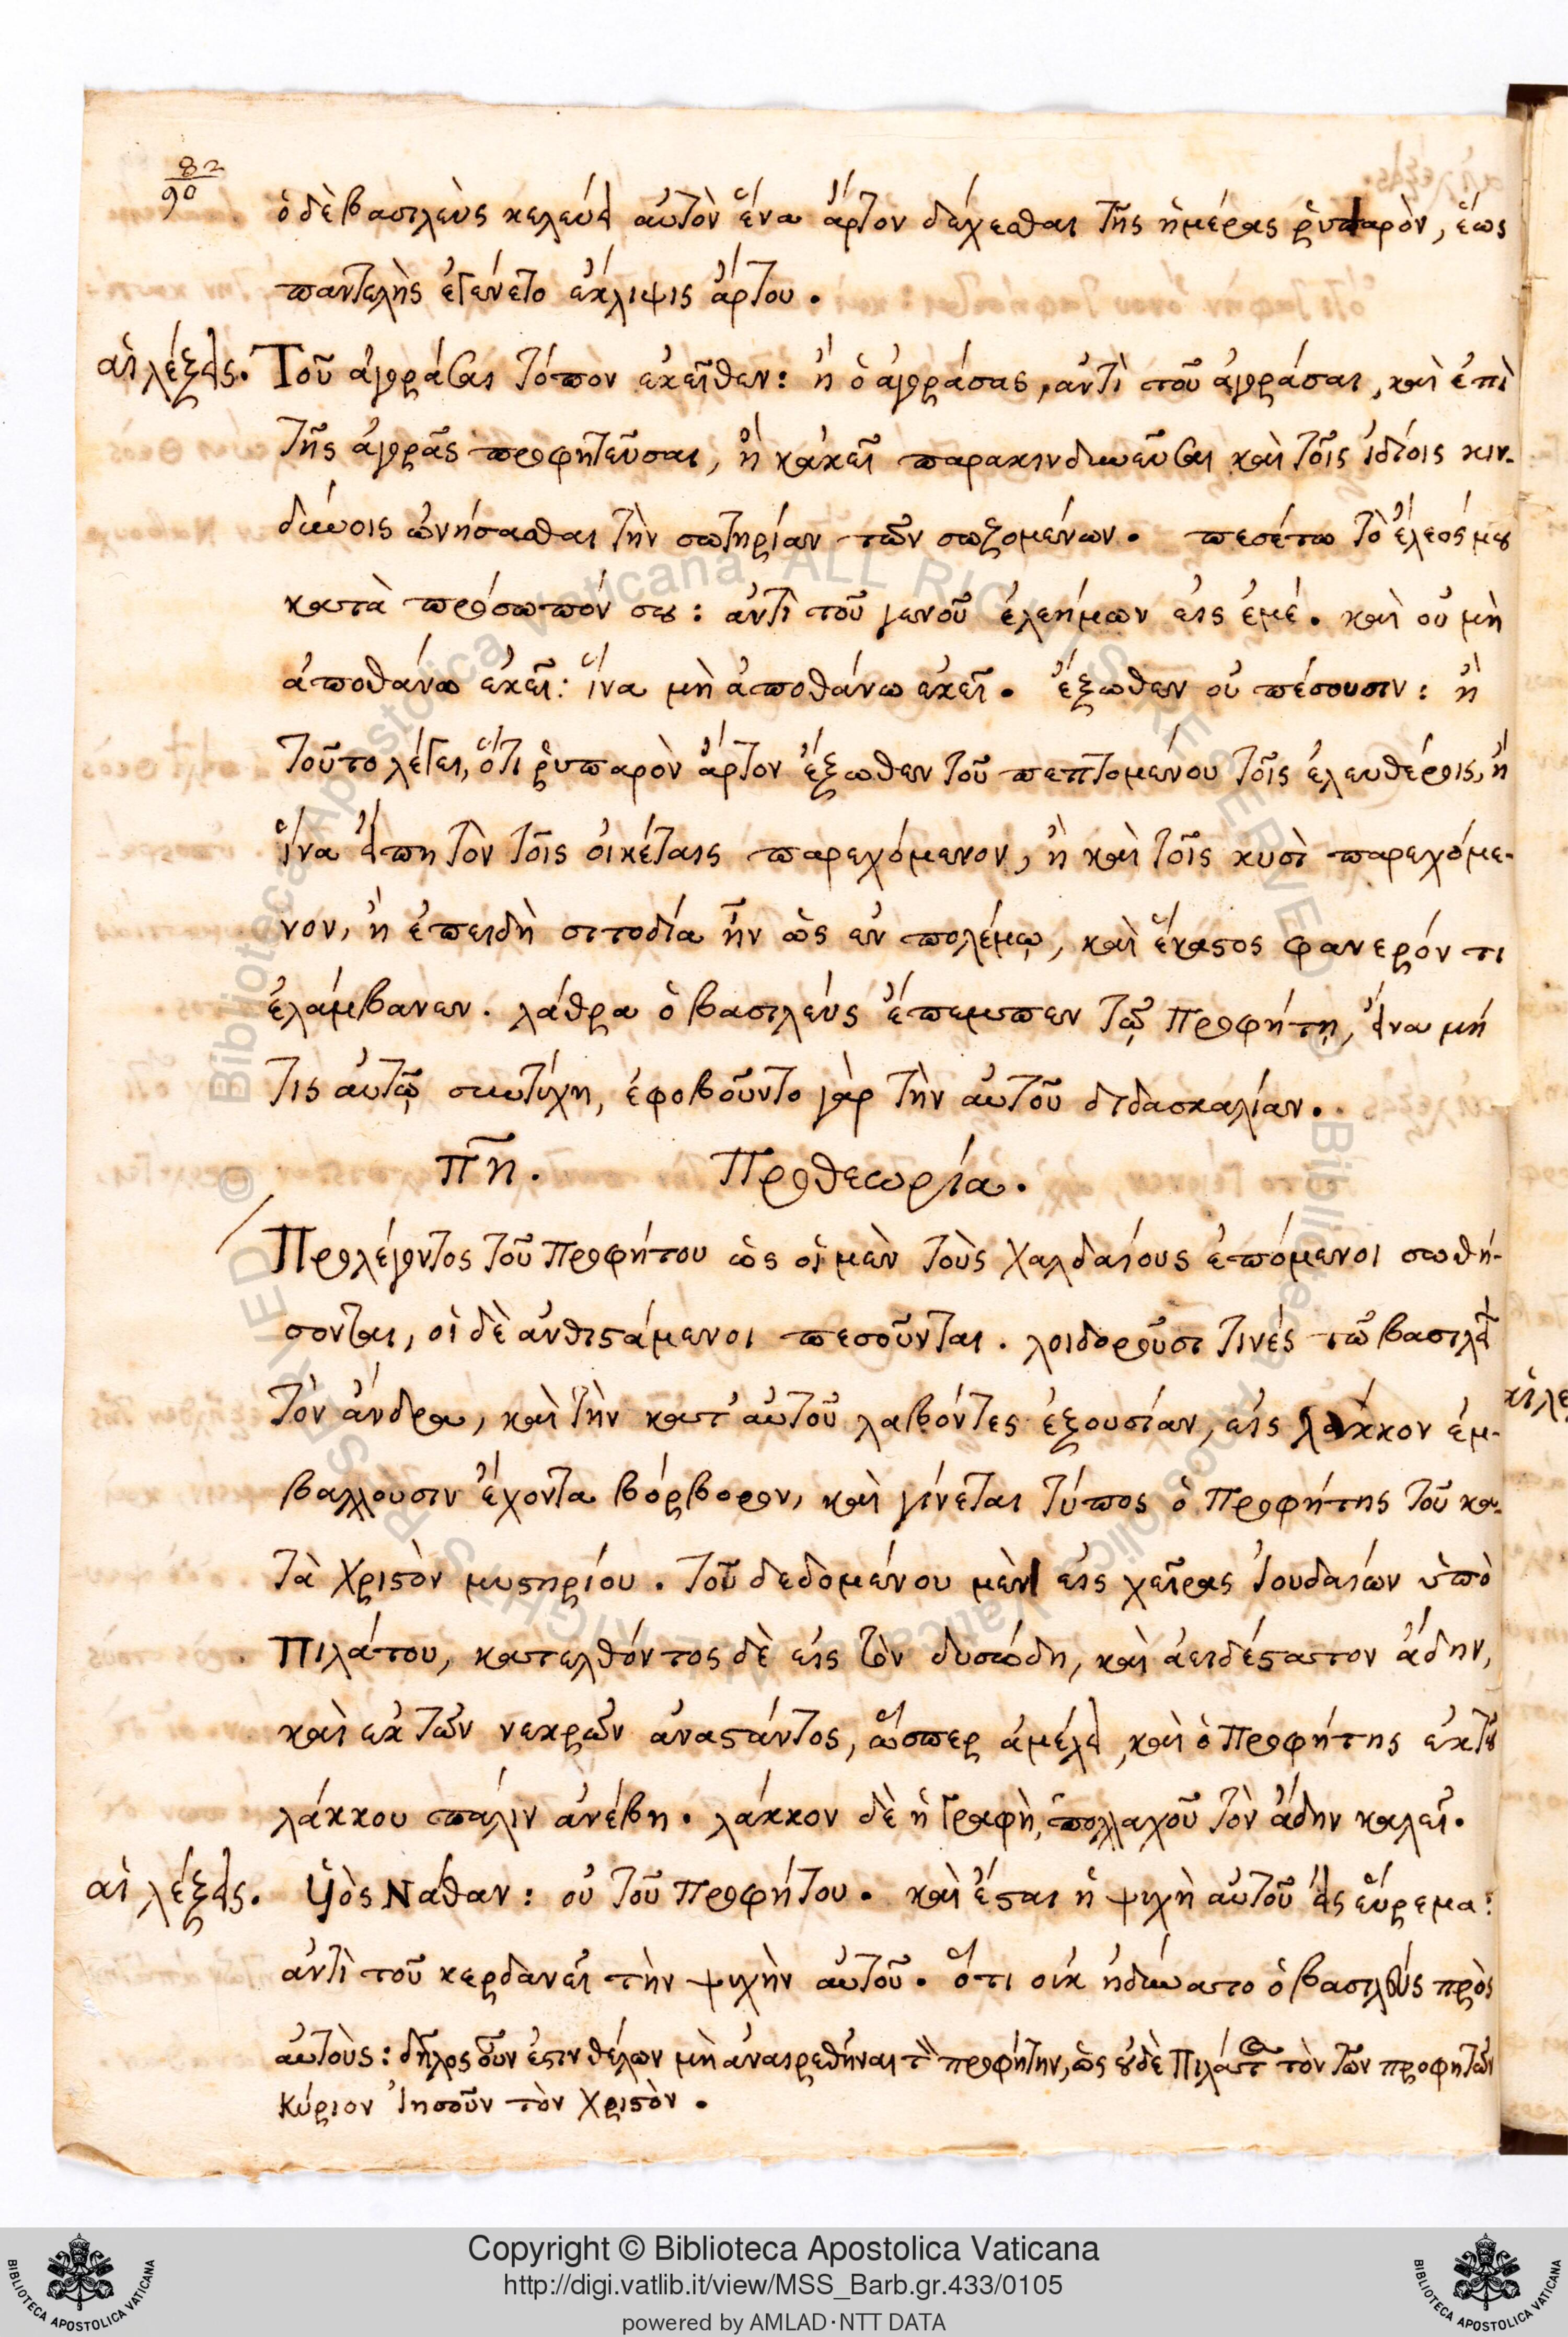 82
90
ὁ δὲ βασιλεὺς κελεύει αὐτὸν ἕνα ἄρτον δέχεσθαι τῆς ἡμέρας ῥυπαρὸν, ἕως
παντελὴς ἐγένετο ἔκλιψις ἄρτου.
αἱ λέξεις. Τοῦ ἀγοράσαι τόπον ἐκεῖθεν: ἢ ὁ ἀγοράσας, ἀντὶ τοῦ ἀγοράσαι, καὶ ἐπὶ
τῆς ἀγορᾶς προφητεῦσαι, ἢ κἀκεῖ παρακινδυνεῦσαι καὶ τοῖς ἰδίοις κιν-
δύνοις ὠνήσασθαι τὴν σωτηρίαν τῶν σωζομένων. πεσέτω τὸ ἔλεός μου
κατὰ πρόσωπόν σου: ἀντὶ τοῦ γενοῦ ἐλεήμων εἰς ἐμέ. καὶ οὐ μὴ
ἀποθάνω ἐκεῖ: ἵνα μὴ ἀποθάνω ἐκεῖ. ἔξωθεν οὐ πέσουσιν: ἢ
τοῦτο λέγει, ὅτι ῥυπαρὸν ἄρτον ἔξωθεν τοῦ πεπτομένου τοῖς ἐλευθέροις, ἢ
ἵνα εἴπη τὸν τοῖς οἰκέταις παρεχόμενον, ἢ καὶ τοῖς κυσὶ παρεχόμε-
νον, ἢ ἐπειδὴ σιτοδία ἦν ὡς ἐν πολέμῳ, καὶ ἕκαστος φανερόν τι
ἐλάμβανεν. λάθρα ὁ βασιλεύς ἔπεμπεν τῷ Προφήτῃ, ἵνα μή
τις αὐτῷ συντύχη, ἐφοβοῦντο γὰρ τὴν αὐτοῦ διδασκαλίαν.
ΠΗ. Προθεωρία.
Προλέγοντος τοῦ Προφήτου ὡς οἱ μὲν τοὺς Χαλδαίους ἑπόμενοι σωθή-
σονται, οἱ δὲ ἀνθιστάμενοι πεσοῦνται. λοιδοροῦσι τινές τῶ βασιλεῖ
τὸν ἄνδρα, καὶ τὴν κατ' αὐτοῦ λαβόντες ἐξουσίαν, εἰς λάκκον ἐμ-
βαλλουσιν ἔχοντα βόρβορον, καὶ γίνεται τύπος ὁ Προφήτης τοῦ κα-
τὰ Χριστὸν μυστηρίου. τοῦ δεδομένου μὲν εἰς χεῖρας Ἰουδαίων ὑπὸ
Πιλάτου, κατελθόντος δὲ εἰς τὸν δυσώδη, καὶ ἀειδέστατον ἅδην,
καὶ ἐκ τῶν νεκρῶν ἀναστάντος, ὥσπερ ἀμέλει, καὶ ὁ Προφήτης ἐκ τοῦ
λάκκου πάλιν ἀνέβη. λάκκον δὲ ἡ Γραφὴ, πολλαχοῦ τὸν ᾅδην καλεῖ.
αἱ λέξεις. Υἱὸς Ναθαν: οὐ τοῦ Προφήτου. καὶ ἔσται ἡ ψυχὴ αὐτοῦ εἰς εὕρεμα:
ἀντὶ τοῦ κερδανεῖ τὴν ψυχὴν αὐτοῦ. ὅτι οὐκ ἠδύνατο ὁ βασιλεύς πρὸς
αὐτοὺς: δῆλος οὖν ἐστιν θέλων μὴ ἀναιρεθῆναι τὸν προφήτην, ὡς οὐδὲ Πιλάτος τὸν τῶν προφητῶν
Κύριον Ἰησοῦν τὸν Χριστὸν.
Copyright © Biblioteca Apostolica Vaticana
http://digi.vatlib.it/view/MSS_Barb.gr.433/0105
powered by AMLAD·NTT DATA